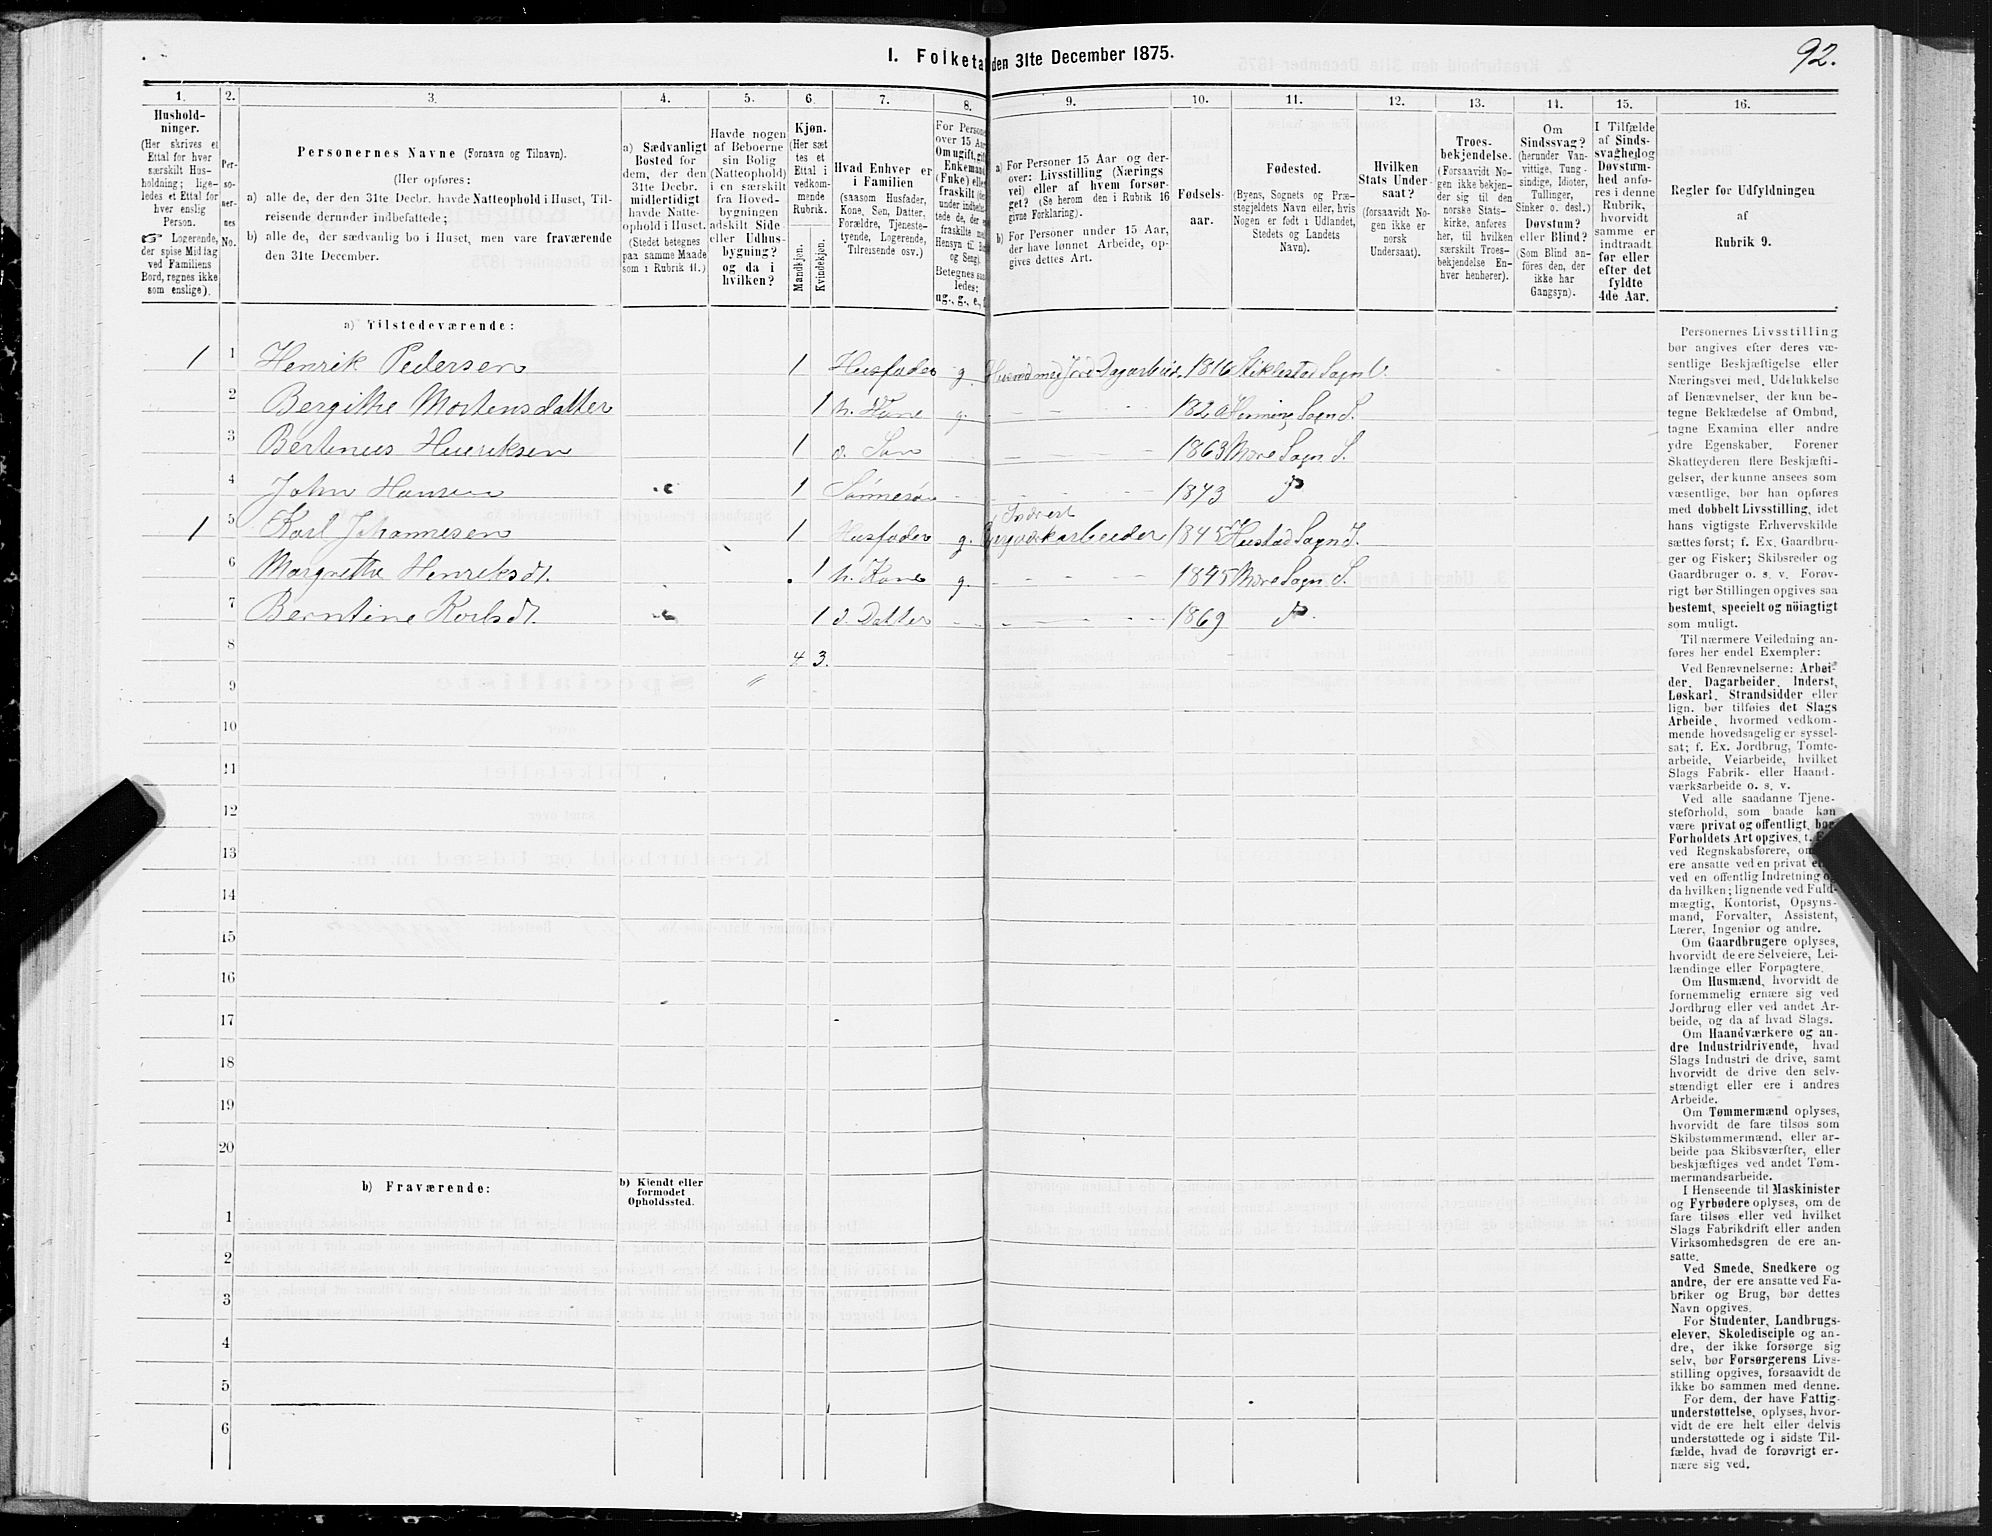 I. Folketal den 31te December 1875.
92.
1.
Hushold-
ninger.
(Her skrives et
Ettal for hver
særskilt Hus-
holdning; lige-
ledes et Ettal for
hver enslig
Person.
Logerende,
der spise Middag
ved Familiens
Bord, regnes ikke
som enslige).
2.
Per-
so-
ner-
nes
No.
3.
Personernes Navne (Fornavn og Tilnavn).
(Her opføres:
a) alle de, der den 31te Decbr. havde Natteophold i Huset, Til-
reisende derunder indbefattede;
b) alle de, der sædvanlig bo i Huset, men vare fraværende
den 31te December.
4.
a) Sædvanligt
Bosted for
dem, der den
31te Decbr.
midlertidigt
havde Natte-
ophold i Huset.
(Stedet betegnes
paa samme Maade
som i Rubrik 11.)
5.
Havde nogen
af Beboerne
sin Bolig
(Natteophold)
i en særskilt
fra Hoved-
bygningen
adskilt Side-
eller Udhus-
bygning?
og da i
hvilken?
6.
Kjøn.
(Her sæt-
tes et
Ettal i
vedkom-
mende
Rubrik.
Mandkjøn.
Kvindekjøn.
7.
Hvad Enhver er
i Familien
(saasom Husfader,
Kone, Søn, Datter,
Forældre, Tjeneste-
tyende, Logerende,
Tilreisende osv.)
8.
For Personer
over 15 Aar:
Om ugift, gift,
Enkemand
(Enke) eller
fraskilt
Betegnes saa-
ledes:
ug., g., e., f.
9.
a) For Personer 15 Aar og der-
over: Livsstilling (Nærings
vei) eller af hvem forsør-
get? (Se herom den i Rubrik 16
givne Forklaring).
b) For Personer under 15 Aar,
der have lønnet Arbeide, op-
gives dettes Art.
10.
Fødsels-
aar.
11.
Fødested.
(Byens, Sognets og Præ-
stegjeldets Navn eller, hvis
Nogen er født i Udlandet,
Stedets og Landets
Navn).
12.
Hvilken
Stats Under-
saat?
(forsaavidt No-
gen ikke er
norsk
Undersaat).
13.
Troes-
bekjendelse.
(Forsaavidt No-
gen ikke bekjen-
der sig til den
norske Stats-
kirke, anføres
her, til hvilken
særskilt Troes-
bekjendelse En-
hver henhører).
14.
Om
Sindssvag?
(herunder Van-
vittige, Tung-
sindige, Idioter,
Tullinger,
Sinker o. desl.)
Døvstum?
eller Blind?
(Som Blind an-
føres den, der
ikke har
Gangsyn).
15.
I Tilfælde
af Sinds-
svaghed og
Døvstum-
hed anfø-
res i denne
Rubrik,
hvorvidt
samme er
indtraadt
før eller
efter det
fyldte
4de Aar.
16.
Regler for Udfyldningen
af
Rubrik 9.
a) Tilstedeværende:
1 1 Henrik Pedersen 1 Husfader g. 1816
2 Bergitte Mortensdatter 1 h. Kone g. 1820
3 Bertinus Henriksen 1 d. Søn 1863 Søgn
4 John Hansen 1 Sønnesøn 1873
Inderst
1 5 Karl Johannesen 1 Husfader g. Bergværkarbeider 1845 Hustad Sogn
6 Margrethe Henriksdt. 1 h. Kone g. 1845
7 Berntine Karlsdt. 1 d. Datter 1869
8 4 3.
9
10
11
12
13
14
15
16
17
18
19
20
b) Fraværende:
b) Kjendt eller
formodet
Opholdssted.
1
2
3
4
5
6
Personernes Livsstilling
bør angives efter deres væ-
sentlige Beskjæftigelse eller
Næringsvei med Udelukkelse
af Benævnelser, der kun be-
tegne Beklædelse af Ombud,
tagne Examina eller andre
ydre Egenskaber. Forener
Skatteyderen flere Beskjæfti-
gelser, der kunne ansees som
væsentlige, bør han opføres
med dobbelt Livsstilling, idet
hans vigtigste Erhvervskilde
sættes først; f. Ex. Gaardbru-
ger og Fisker; Skibsreder og
Gaardbruger o. s. v. Forøv-
rigt bør Stillingen opgives saa
bestemt, specielt og nöiagtigt
som muligt.
Til nærmere Veiledning an-
føres her endel Exempler:
Ved Benævnelserne: Arbei-
der, Dagarbeider, Inderst,
Løskarl, Strandsidder eller
lign. bør tilføies det Slags
Arbeide, hvormed vedkom-
mende hovedsagelig er syssel-
sat; f. Ex. Jordbrug, Tomte-
arbeide, Veiarbeide, hvilket
Slags Fabrik- eller Haand-
værksarbeide o. s. v.
Ved alle saadanne Tjene-
steforhold, som baade kan
være privat og offentligt, bør
Forholdets Art opgives,
ved Regnskabsførere,
ere ansatte ved en privat
ved en offentlig Indretning og
da hvilken; lignende ved Fuld-
mægtig, Kontorist, Opsyns-
mand, Forvalter, Assistent,
Lærer, Ingeniør og andre.
Om Gaardbrugere oplyses,
hvorvidt de ere Selveiere, Lei-
lændinge eller Forpagtere.
Om Husmænd, hvorvidt de
fornemmelig ernære sig ved
Jordbrug eller ved andet Ar-
beide, og da af hvad Slags.
Om Haandværkere og an-
dre Industridrivende, hvad
Slags Industri de drive, samt
hvorvidt de drive den selv-
stændigt eller ere i andres
Arbeide.
Om Tømmermænd oplyses,
hvorvidt de fare tilsøs som
Skibstømmermænd, eller ar-
beide paa Skibsværfter, eller
beskjæftiges ved andet Tøm-
mermandsarbeide.
I Henseende til Maskinister
og Fyrbødere oplyses, om de
fare tilsøs eller ved hvilket
Slags Fabrikdrift eller anden
Virksomhedsgren de ere an-
satte.
Ved Smede, Snedkere og
andre, der ere ansatte ved Fa-
briker og Brug, bør dettes
Navn opgives.
For Studenter, Landbrugs-
elever, Skoledisciple og an-
dre, der ikke forsørge sig
selv, bør Forsørgerens Livs-
stilling opgives, forsaavidt de
ikke bo sammen med denne.
For dem, der have Fattig-
understøttelse, oplyses, hvor-
vidt de ere helt eller delvis
understøttede og i sidste Til-
fælde, hvad de forøvrigt er-
nære sig ved.